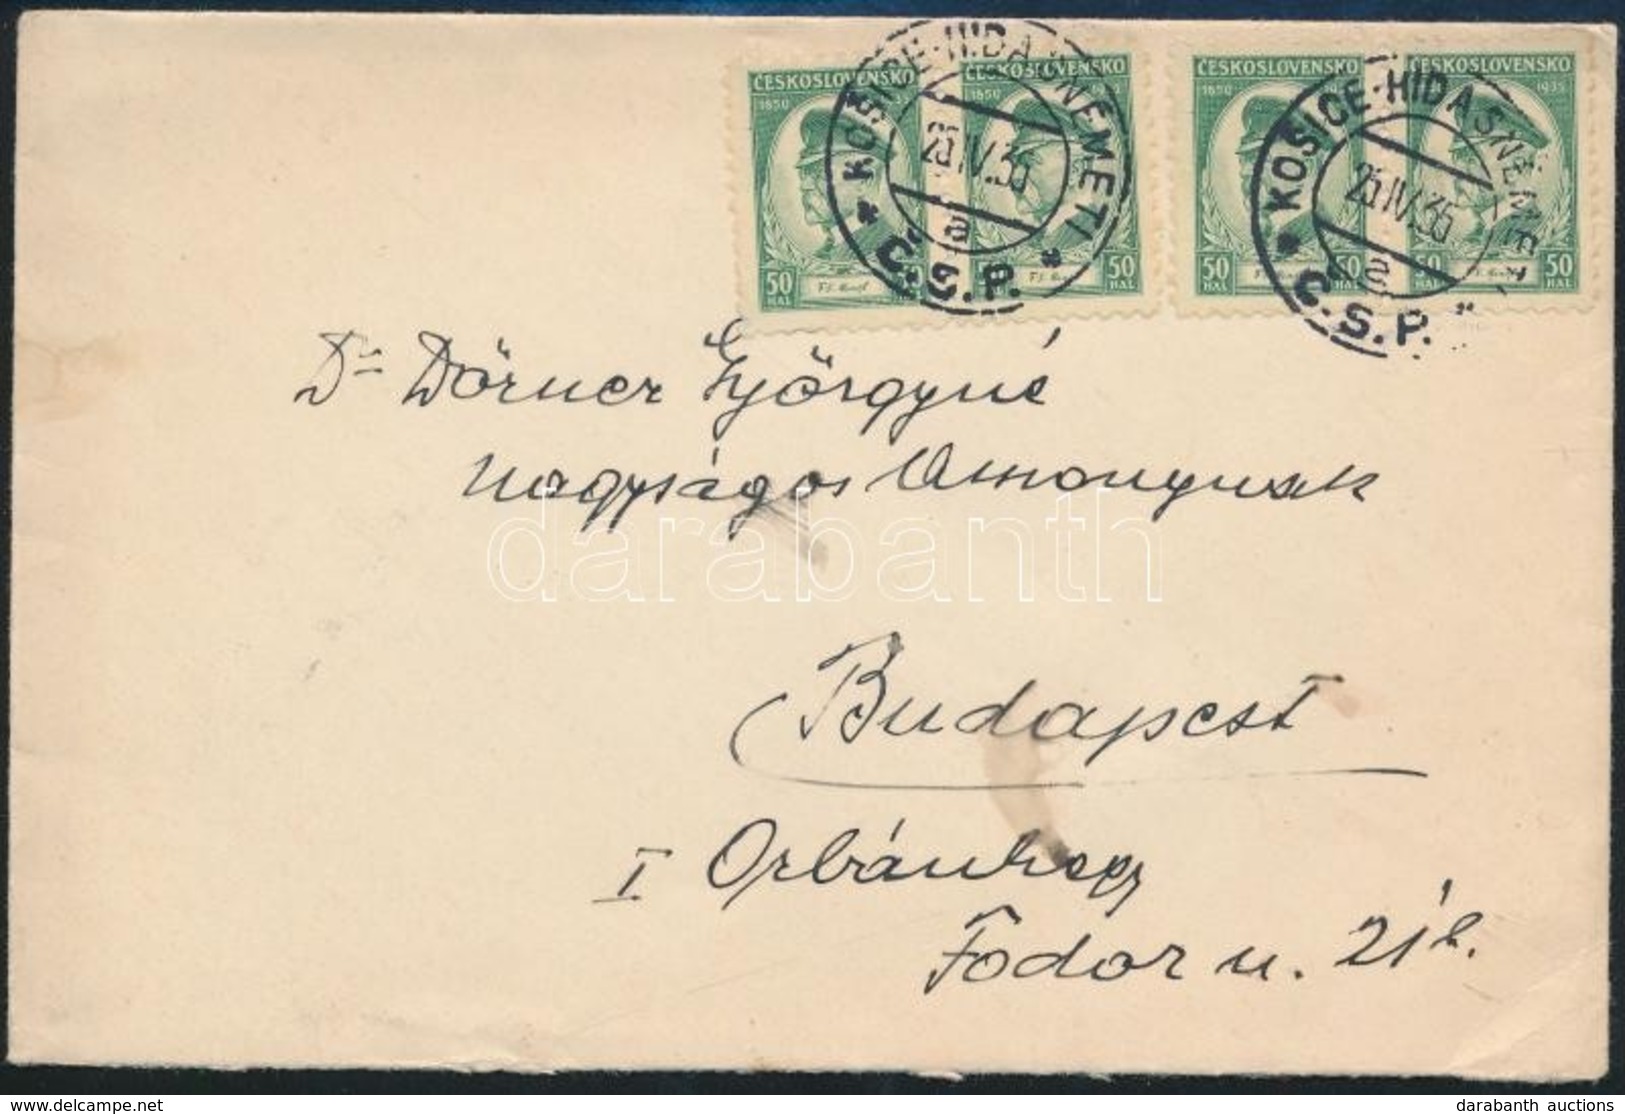 ČESKOSLOVENSKO ČESKOSLOVENSKO ČESKOSLOVENSKO ČESKOSLOVENSKO
1850 1935
50 HAL 50 50 HAL
50 HAL 50 HAL 50 HAL
KOŠICE-HIDASNEMETI
25.IV.35
a
* Č.S.P. *
KOŠICE-HIDASNEMET
25.IV.35
a
* Č.S.P. *
Dr Dörner Györgyné
Nagyságos Asszonynak
darabanth
Budapest
I Orbánhegy
Fodor u. 21/b.
darabanth auctions
www.delcampe.net